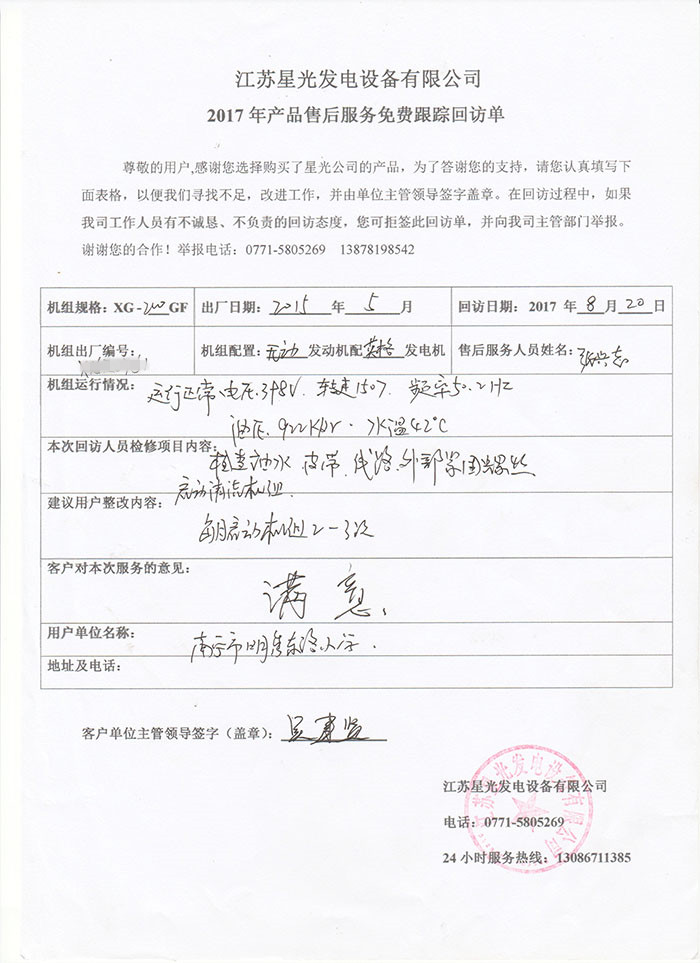 江苏星光发电设备有限公司
2017 年产品售后服务免费跟踪回访单
尊敬的用户,感谢您选择购买了星光公司的产品，为了答谢您的支持，请您认真填写下
面表格，以便我们寻找不足，改进工作，并由单位主管领导签字盖章。在回访过程中，如果
我司工作人员有不诚恳、不负责的回访态度，您可拒签此回访单，并向我司主管部门举报。
谢谢您的合作！举报电话：0771-5805269 13878198542
机组规格：XG-200GF 出厂日期：2015 年 5 月 回访日期：2017 年 8 月 20 日
机组出厂编号： 机组配置：无动 发动机配 英格 发电机 售后服务人员姓名：张兴志
机组运行情况：运行正常、电压398V. 转速1507. 频率50.2HZ
油压. 422Kpr. 水温42℃
本次回访人员检修项目内容：检查油水 皮带、线路、外部紧固螺丝
启动清洗机组.
建议用户整改内容：
每月启动机组2-3次
客户对本次服务的意见：
满意、
用户单位名称：南宁市明秀东路小学.
地址及电话：
客户单位主管领导签字（盖章）：
江苏星光发电设备有限公司
电话：0771-5805269
24 小时服务热线：13086711385
江苏星光发电设备有限公司